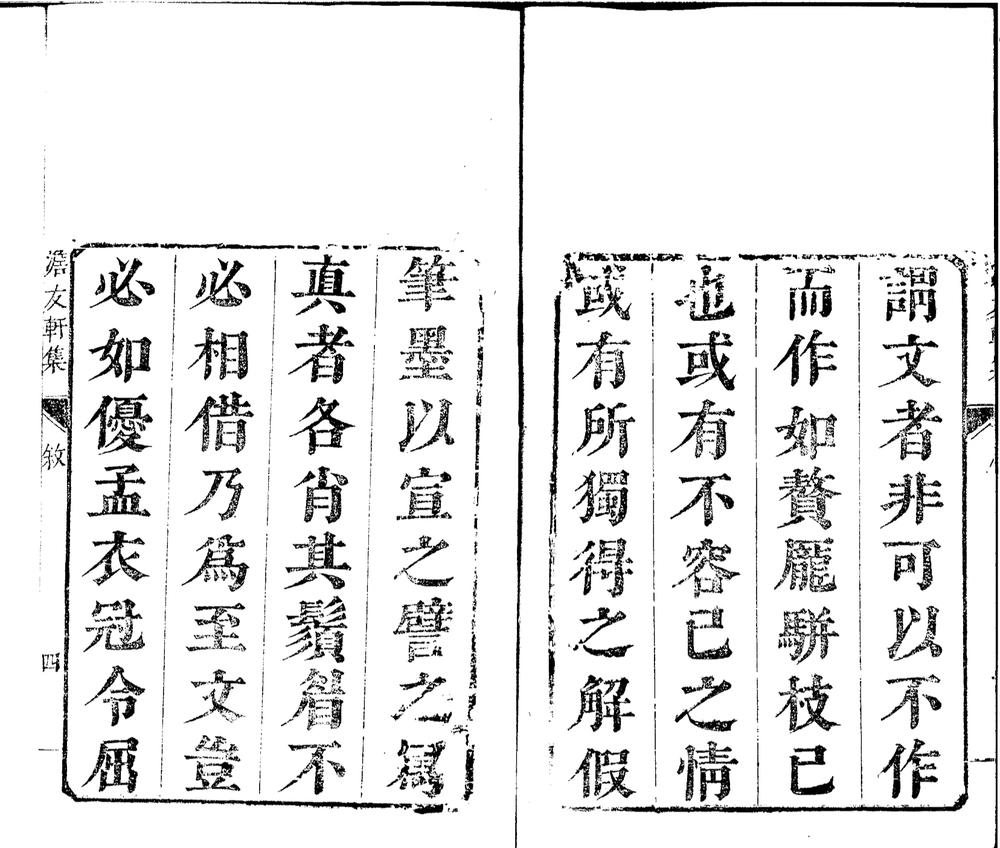 謂文者非可以不作
而作如贅龎駢枝已
也或有不容已之情
或有所獨得之解假
筆墨以宣之譬之寫
真者各肖其鬚眉不
必相借乃爲至文豈
必如優孟衣冠令屈
澹友軒集
敘
四